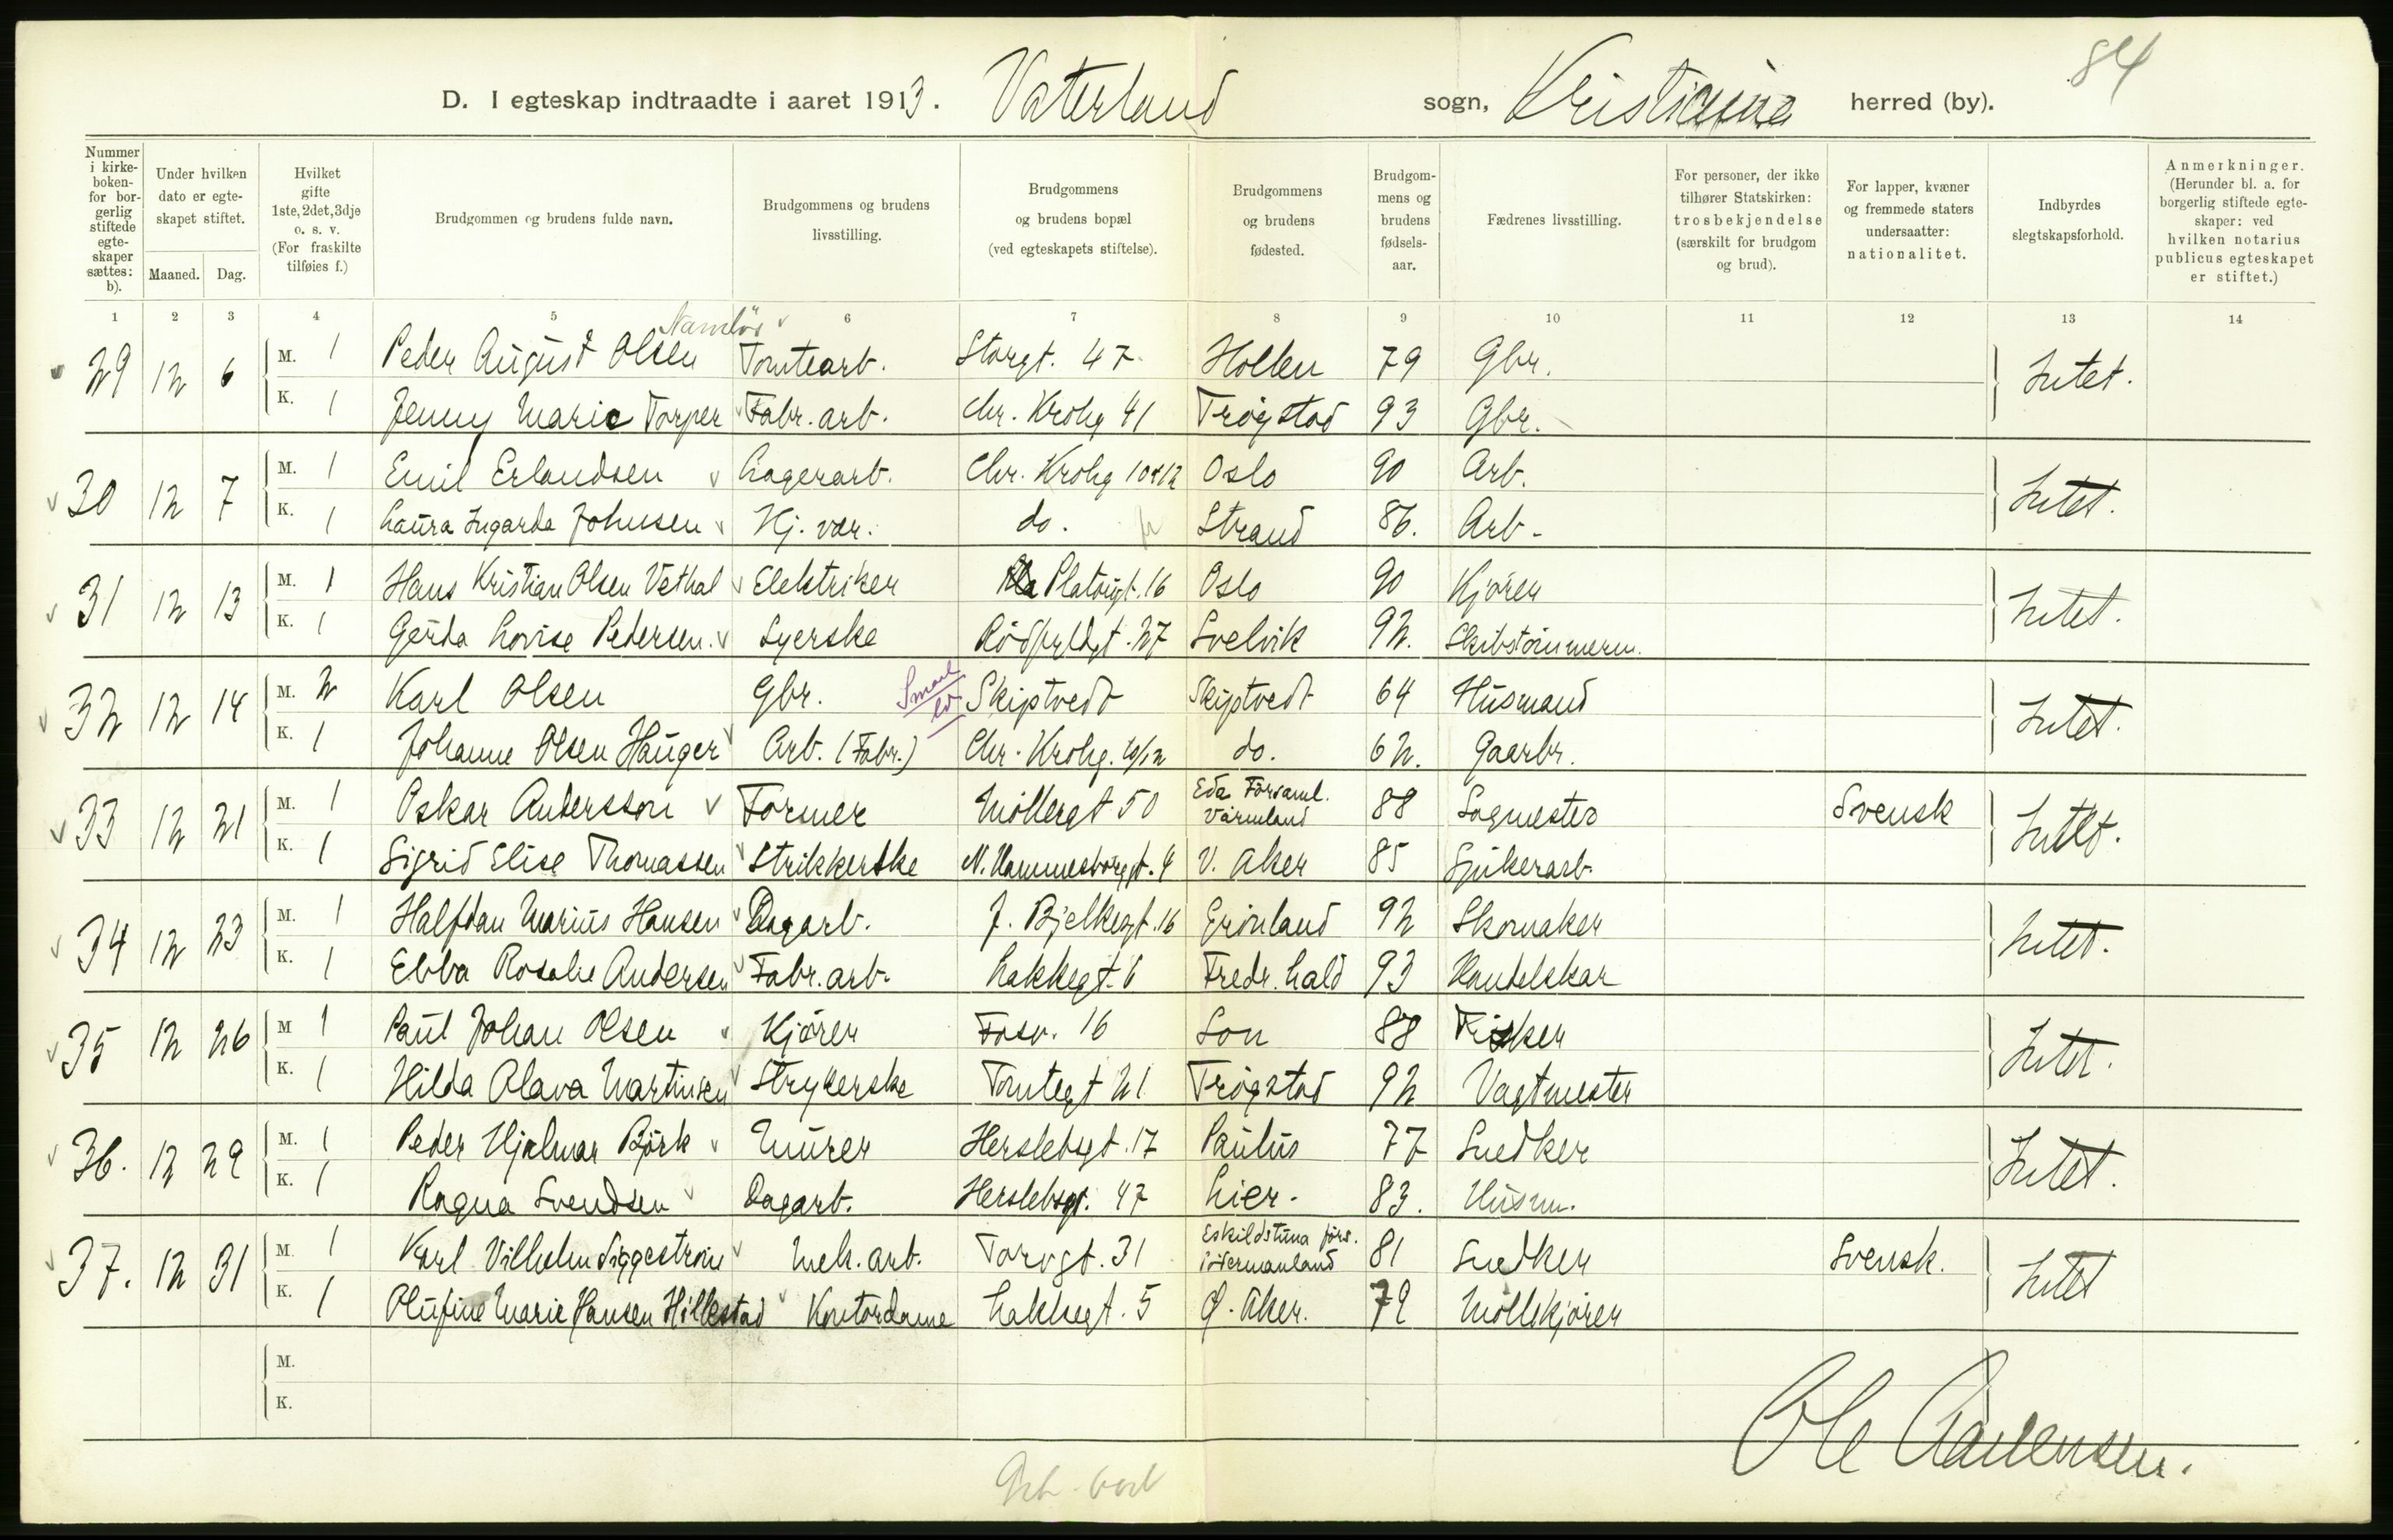 84
D. I egteskap indtraadte i aaret 1913. Vaterland sogn, Kristiania herred (by).
Nummer i kirke-boken- for bor-gerlig stiftede egte-skaper sættes: b).
Under hvilken dato er egte-skapet stiftet.
Maaned. Dag.
Hvilket gifte 1ste, 2det, 3dje o. s. v. (For fraskilte tilføies f.)
Brudgommen og brudens fulde navn.
Brudgommens og brudens livsstilling.
Brudgommens og brudens bopæl (ved egteskapets stiftelse).
Brudgommens og brudens fødested.
Brudgom-mens og brudens fødsels-aar.
Fædrenes livsstilling.
For personer, der ikke tilhører Statskirken: trosbekjendelse (særskilt for brudgom og brud).
For lapper, kvæner og fremmede staters undersaatter: nationalitet.
Indbyrdes slegtskapsforhold.
Anmerkninger. (Herunder bl. a. for borgerlig stiftede egte-skaper: ved hvilken notarius publicus egteskapet er stiftet.)
1 2 3 4 5 6 7 8 9 10 11 12 13 14
Namløs
29 12 6 M. 1 Peder August Olsen Tomtearb. Storgt. 47 Hollen 79 Gbr. Intet.
K. 1 Jenny Marie Torper Fabr. arb. Chr. Krohg 41 Trøgstad 93 Gbr.
30 12 7 M. 1 Emil Erlandsen Lagerarb. Chr. Krohg 10 12 Oslo 90 Arb. Intet.
K. 1 Laura Ingarda Johnsen Hj. vær. do. Strand 86. Arb.
31 12 13 M. 1 Hans Kristian Olsen Vethal Elektriker Platougt. 16 Oslo 90 Kjører Intet.
K. 1 Gerda Lovise Pedersen. Syerske Rødfyldgt. 27 Svelvik 92. Skibstømmerm.
32 12 14 M. 2 Karl Olsen Gbr. Skiptvedt Skiptvedt 64 Husmand Intet.
K. 1 Johanne Olsen Hauger Arb. (Fabr.) Chr. Krohg. 10/12 do. 62. Gaarbr.
33 12 21 M. 1 Oskar Andersson Former Møllergt 50 Eda Församl. Värmland 88 Sagmester Svensk Intet.
K. 1 Sigrid Elise Thomassen Strikkerske N. Hammersborggt. 4 V. Aker 85 Spikerarb.
34 12 23 M. 1 Halfdan Marius Hansen Dagarb. J. Bjelkesgt. 16 Grønland 92 Skomaker Intet.
K. 1 Ebba Rosalie Andersen Fabr. arb. Lakkegt. 6 Fredr. hald 93 Handelskar
35 12 26 M 1 Paul Johan Olsen Kjører Fosv. 16 Son 88 Fisker Intet.
K. 1 Hilda Olava Martinsen Strykerske Tomtegt 21 Trøgstad 92 Vagtmester
36. 12 29 M. 1 Peder Hjalmar Björk Murer Herslebsgt. 17 Paulus 77 Snedker Intet.
K. 1 Ragna Svendsen Dagarb. Herslebsgt. 47 Lier. 83. Husm.
37. 12 31 M. 1 Karl Vilhelm Siggestrøm Mek. arb. Torvgt. 31 Eskildstuna förs. södermanland 81 Snedker Svensk. Intet
K. 1 Olufine Marie Hansen Hillestad Kontordame Lakkegt. 5 Ø. Aker. 79 Møllekjører
M.
K.